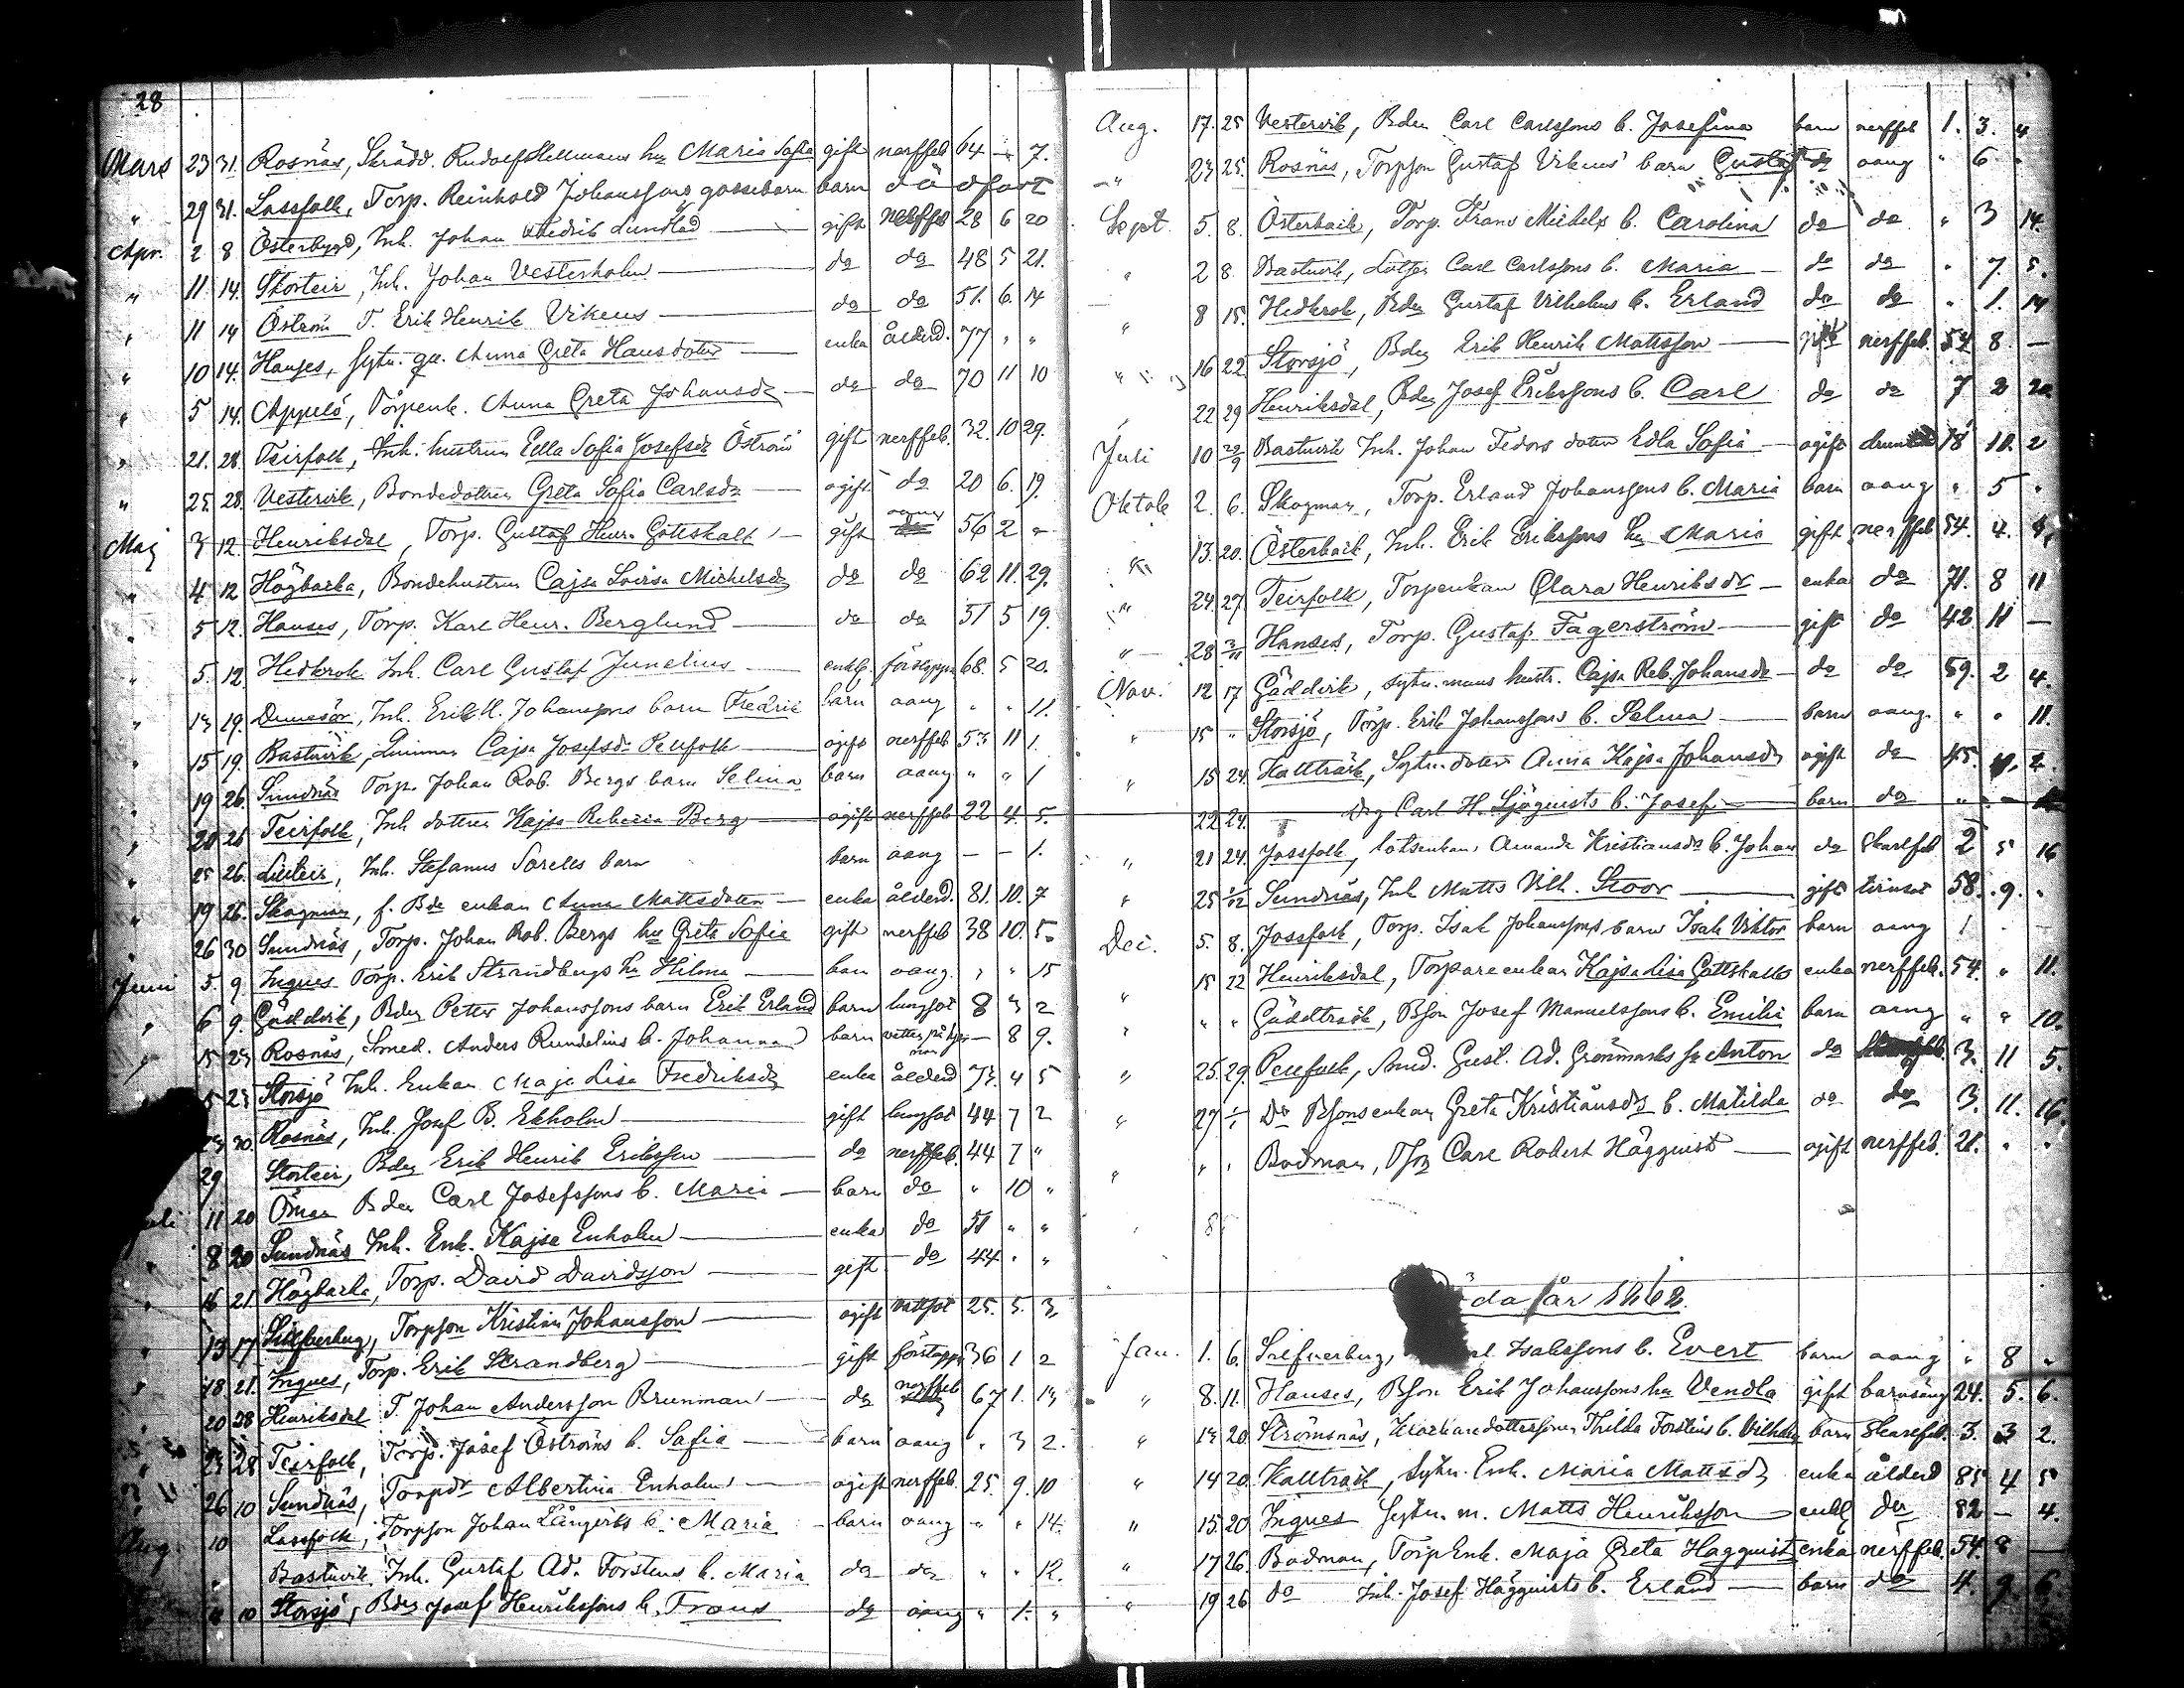 28
Mars 23 31. Rosnäs, Skrädd. Rudolf Hellmans hu Maria Sofia gift nerffeb 64 - 7.
" 29 31. Lassfolk, Torp. Reinhold Johanssons gossebarn barn
Apr. 2 8 Österbygd, Inh. Johan Fredrik Lundblad gift nerffeb 28 6 20
" 11. 14. Storteir, Inh. Johan Vesterholm do do 48 5 21.
" 11 14 Öström T. Erik Henrik Vikeus do do 51. 6. 14
" 10 14. Hanses, Sytn. gu. Anna Greta Hansdotter enka ålderd. 77 " "
" 5 14. Appelö, Torpenk. Anna Greta Johansdr do do 70 11 10
" 21. 28. Teirfolk, Inh. hustrun Edla Sofia Josefsdr Öström gift nerffeb. 32. 10 29.
" 25. 28. Vestervik, Bondedottren Greta Sofia Carlsdr ogift do 20 6. 19.
Maj 3 12. Henriksdal, Torp. Gustaf Henr. Gottskalk gift 56 2 "
" 4 12 Högbacka, Bondehustrun Cajsa Lovisa Michelsdr do do 62 11. 29.
" 5 12. Hanses, Torp. Karl Henr. Berglund do do 51 5 19.
" 5. 12. Hedkrok Inh. Carl Gustaf Junelius enkl. förstoppn 68. 5 20.
" 13 19. Inh. Erik H. Johanssons barn Fredric barn aang " " 11.
" 15 19. Bastuvik, Cajsa Josefsdr Penfolk ogift nerffeb 53 11 1.
" 19 26. Sundnäs Torp. Johan Rob. Bergs barn Selina barn aang " " 1
" 20 26 Teirfolk, Inh dottren Kajsa Rebecca Berg ogift nerffeb 22 4. 5.
" 25 26. Inh. Stefanus Sorells barn barn aang - - 1.
" 19 26. Skagman, f. Bde enkan Anna Mattsdotter enka ålderd. 81. 10. 7
" 26 30 Sundnäs, Torp. Johan Rob. Bergs hu Greta Sofia gift nerffeb 38 10. 5.
Juni 5. 9 Ingves Torp. Erik Strandbergs hu Hilma aang. " " 15
" 6 9. Gäddvik, Bden Petter Johanssons barn Erik Erland barn lungsot 8 3 2
" 15 23 Rosnäs, Smed. Anders Rundelius b. Johanna barn 8 9.
5 23 Storsjö Inh. Enkan Maja Lisa Fredriksdr enka ålderd 73. 4 5
23 30. Rosnäs, Inh. Josef B. Ekholm gift lungsot 44 7 2
29 Storteir, Bden Erik Henrik Eriksson do nerffeb. 44 7 "
11 20 Öman Bden Carl Josefssons b. Maria barn do " 10 "
" 8 20 Sundnäs Inh. Enk. Kajsa Enholm enka do 51 " "
" 16 21 Högbacka, Torp. David Davidsson gift do 44 " "
" 13 17 Silfverberg, Torpson Kristian Johansson ogift vattsot 25. 5. 3
" 18 21. Ingves, Torp. Erik Strandberg gift förstoppn 36 1 2
" 20 28 Henriksdal T. Johan Andersson Brunman do nerffeb 67 1. 13
" 23 28 Teirfolk, Torp. Josef Öströms b. Sofia barn aang " 3 2.
" 26 10 Sundnäs, Torpdr Albertina Enholm ogift nerffeb. 25. 9. 10
Aug. 10 Lassfolk, Torpson Johan Långviks b. Maria barn aang " " 14.
" Bastuvik Inh. Gustaf Ad. Forstens b. Maria do do " " 12.
" 10 Storsjö, Bden Josef Henrikssons b. Frans do aang " 1. "
Aug. 17. 25 Vestervik, Bden Carl Carlssons b. Josefina barn nerffeb 1. 3. 4
" 23 25. Rosnäs, Torpson Gustaf Vikeus' barn Gustaf do aang " 6 "
Sept. 5. 8. Österback, Torp. Frans Michels b. Carolina do do " 3 14.
" 2 8. Bastuvik, Lotsen Carl Carlssons b. Maria do do " 7 5.
" 8 15. Hedkrok, Bden Gustaf Vilhelms b. Erland do do " 1. 14
" 16 22 Storsjö, Bden Erik Henrik Mattsson gift nerffeb. 54 8. -
" 22 29 Henriksdal, Bden Josef Erikssons b. Carl do do 7 2 20
Juli 10 20/9 Bastuvik Inh. Johan Fedors dotter Edla Sofia ogift 18 10. 2
Oktob 2. 6. Skagman, Torp. Erland Johanssons b. Maria barn aang " 5 "
" 13. 20. Österback, Inh. Erik Erikssons hu Maria gift nerffeb 54. 4. 4.
" 24. 27. Teirfolk, Torpenkan Clara Henriksdr enka do 71. 8 11
" 28 3/11 Hanses, Torp. Gustaf Fagerström gift do 42 11 -
Nov. 12 17 Gäddvik, sytn. mans hustr. Cajsa Reb. Johansdr do do 59. 2 4.
" 15 " Storsjö, Torp. Erik Johanssons b. Selma barn aang. " " 11.
" 15 24. Kallträsk, Sytn. dotter Anna Kajsa Johansdr ogift do 45. 2.
22 24. Drg Carl H. Sjöquists b. Josef barn do " -
" 21 24. Jossfolk, lotsenkan Amanda Kristiansdr b. Johan do Skarlfeb 2 5 16
" 25 1/12 Sundnäs, Inh Matts Vilh. Stoor gift 58. 9. "
Dec. 5. 8. Jossfolk, Torp. Isak Johanssons barn Isak Viktor barn aang 1 " -
15 22 Henriksdal, Torpareenkan Kajsa Lisa Gottskalk enka nerffeb. 54. " 11.
" " " Gäddträsk, Bson Josef Manuelssons b. Emilia barn aang " " 10.
" 25. 29. Penfolk, Smed. Gust. Ad. Grönmarks b. Anton do 3. 11 5.
" 27 Do Bsonsenkan Greta Kristiansdr b. Matilda do do 3. 11. 16.
" " " Badman, Tson Carl Robert Häggquist ogift nerffeb. 21. " "
8
Döda år 1868.
Jan. 1. 6. Silfverberg, Isakssons b. Evert barn aang " 8 "
" 8. 11. Hanses, Bson Erik Johanssons hu Vendla gift barnsäng 24. 5. 6.
" 13 20. Strömsnäs, Thilda Forstens b. Vilhelm barn Skarlfeb. 3. 3 2.
" 14 20. Kallträsk, Sytn. Enk. Maria Mattsdr enka ålderd 85 4 5
" 15. 20 Ingves Sytn. m. Matts Henriksson enkl do 82 - 4.
" 17 26. Badman, Torp Enk. Maja Greta Häggquist enka nerffeb. 54. 8 -
" 19 26 do Inh. Josef Häggquists b. Erland barn do 4. 9. 6